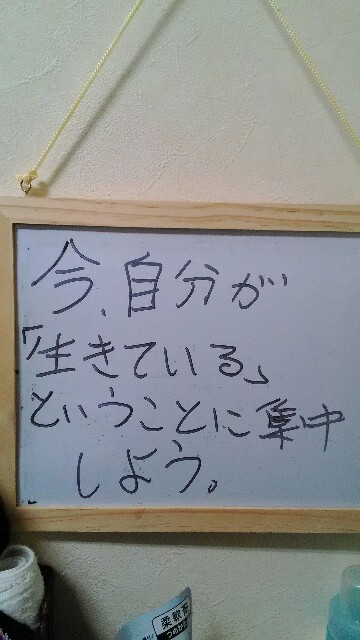 今、自分が
「生きている」
ということに集中
しよう。
柔軟剤